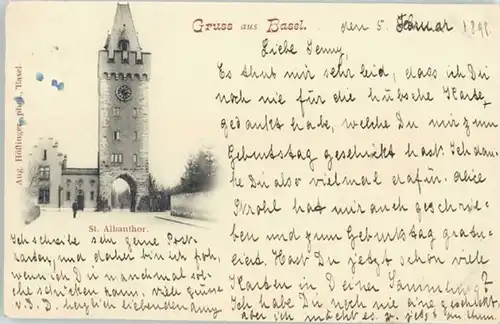 Gruss aus Basel.
den 5. Februar 1898.
Liebe Jenny,
Es thut mir sehr leid, dass ich Dir
noch nie für die hübsche Karte
gedankt habe, welche Du mir zum
Geburtstag geschickt hast. Ich dan-
ke Dir also vielmal dafür. Alice
Strohl hat mir auch geschrie-
ben und zum Geburtstag gratu-
liert. Hast Du jetzt schon viele
Karten in Deiner Sammlung?
Ich habe Du noch nie eine geschickt
aber ich möchte es jetzt
Aug. Höflinger, phot., Basel
St. Albanthor.
Ich schreibe sehr gerne Post-
karten, und daher bin ich froh,
wenn ich Dir manchmal sol-
che schicken kann. Viele Grüsse
v. D. D. herzlich liebenden